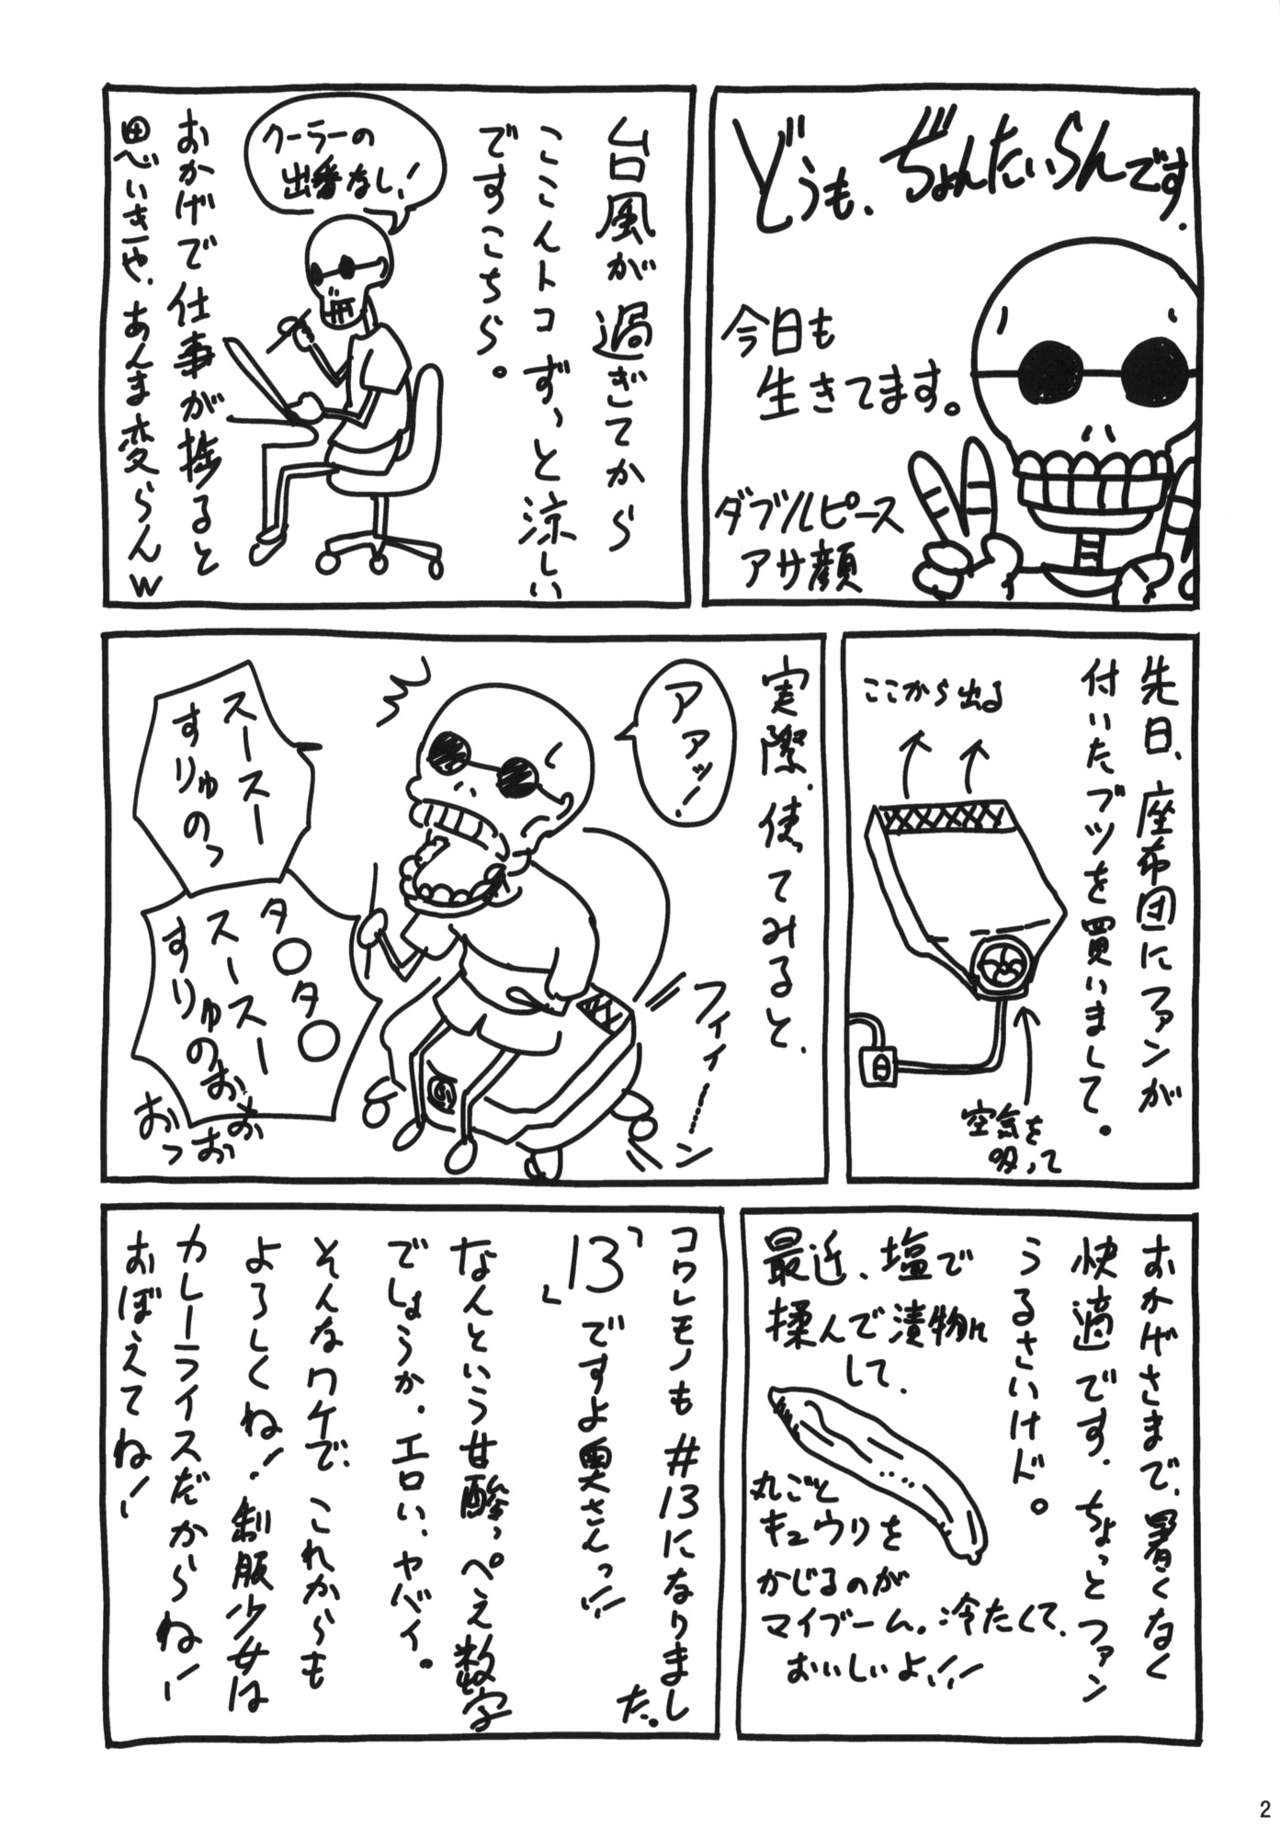 どうも、ぢょんたいらんです。
今日も
生きてます。
ダブルピース
アサ顔
台風が過ぎてから
ここんトコずっと涼しい
ですこちら。
クーラーの
出番なし!
おかげで仕事が捗ると
思いきや、あんま変らんw
先日、座布団にファンが
付いたブツを買いまして。
ここから出る
空気を
吸って
実際、使ってみると、
アアッ!
フィィーーン
スースー
すりゅのっ
タ〇タ〇
スースー
すりゅのぉ
おぉ
おお
おっ
おかげさまで、暑くなく
快適です。ちょっとファン
うるさいけど。
最近、塩で
揉んで漬物に
して、
丸ごと
キュウリを
かじるのが
マイブーム。冷たくて、
おいしいよ!!
コワレモノも#13になりまし
た。
「13」ですよ奥さんっ!!
なんという甘酸っぺぇ数字
でしょうか。エロい、ヤバイ。
そんなワケで、これからも
よろしくね!制服少女は
カレーライスだからね!
おぼえてね!
2